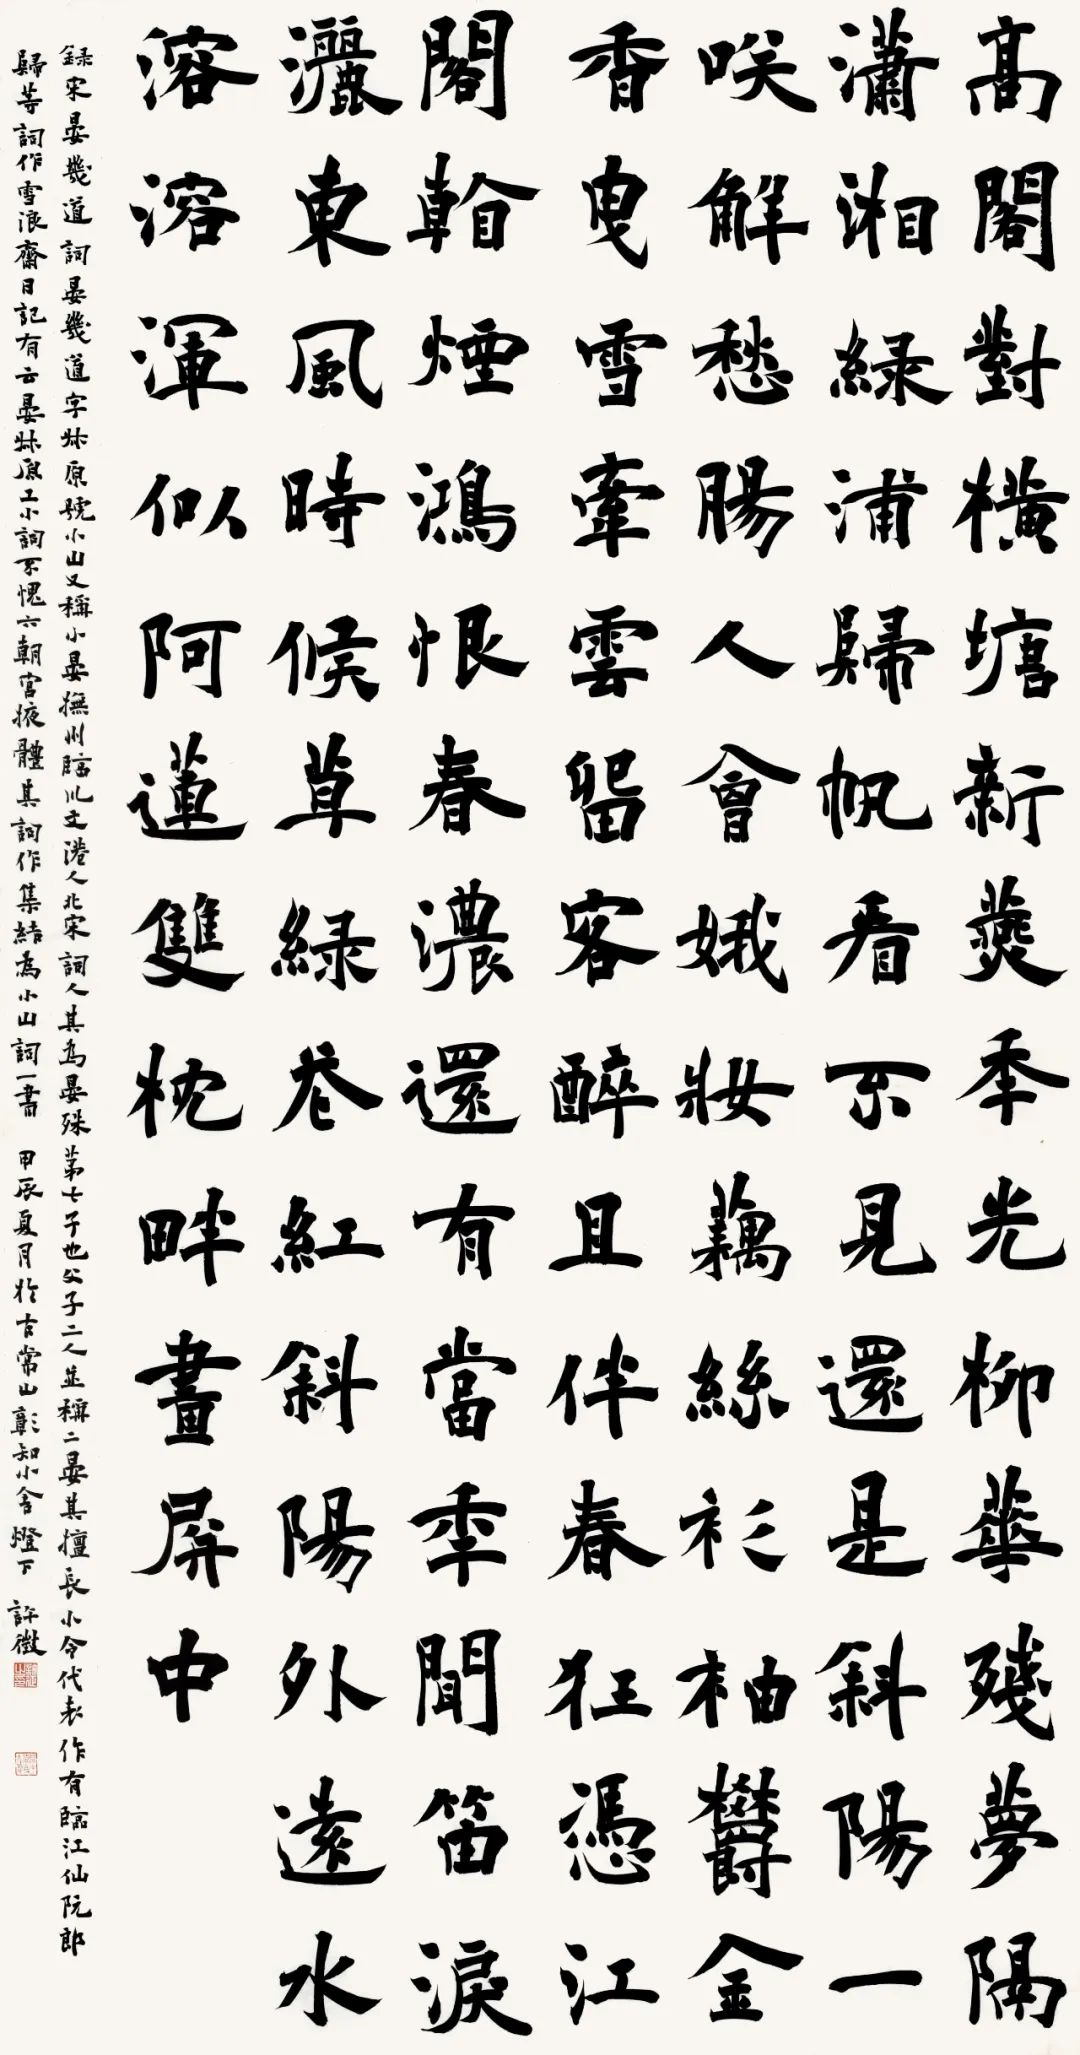 高閣對橫塘新燕年光柳華殘夢隔
瀟湘綠浦歸帆看不見還是斜陽一
咲解愁腸人會娥妝藕絲衫袖鬱金
香曳雪牽雲留客醉且伴春狂憑江
閣看煙鴻恨春濃還有當年聞笛淚
灑東風時候草綠巷紅斜陽外遠水
溶溶渾似阿蓮雙枕畔畫屏中
錄宋晏幾道詞晏幾道字叔原號小山又稱小晏撫州臨川文港人北宋詞人其為晏殊第七子也父子二人並稱二晏其擅長小令代表作有臨江仙阮郎
歸等詞作雪浪齋日記有云晏叔原工小詞不愧六朝宮掖體其詞作集結為小山詞一書 甲辰夏月於古常山彰知小舍燈下 許徵